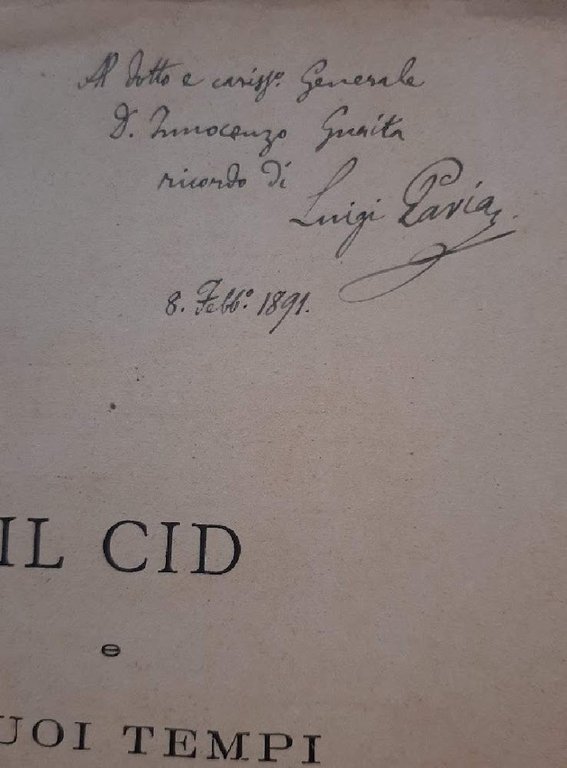 Al dotto e cariss.º Generale
D. Innocenzo Guaita
ricordo di
Luigi Pavia
8. Febb.º 1891.
IL CID
e
UOI TEMPI